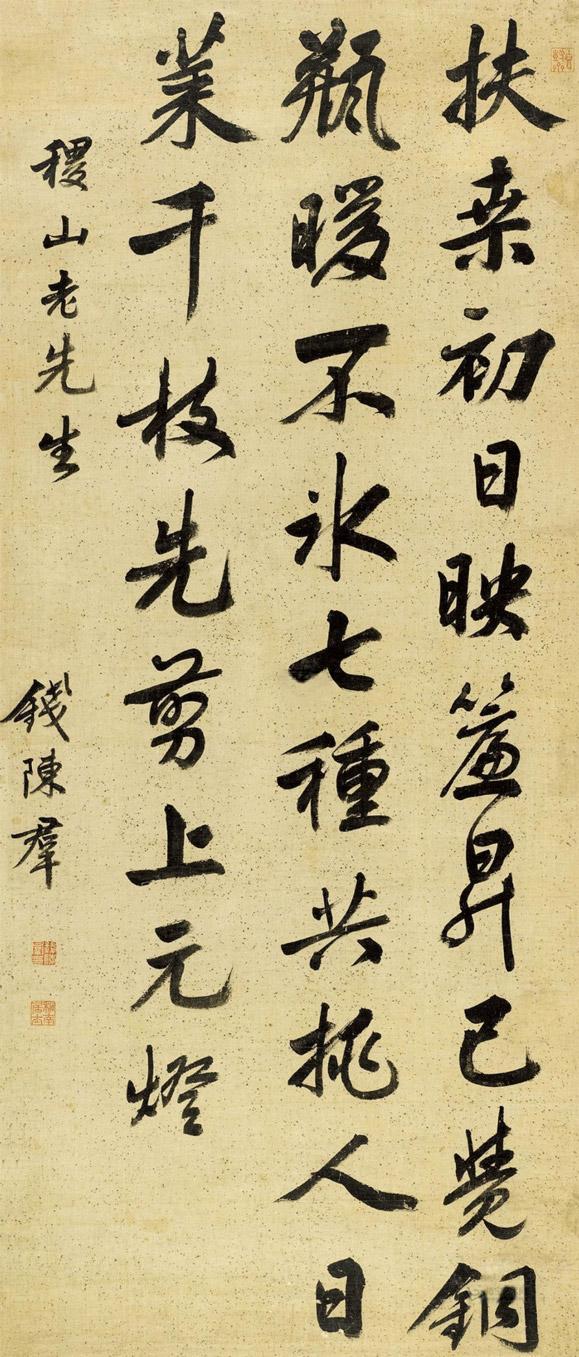 扶桑初日映簾昇已覺銅
瓶暖不冰七種共挑人日
菜千枝先剪上元燈
稷山老先生
錢陳羣